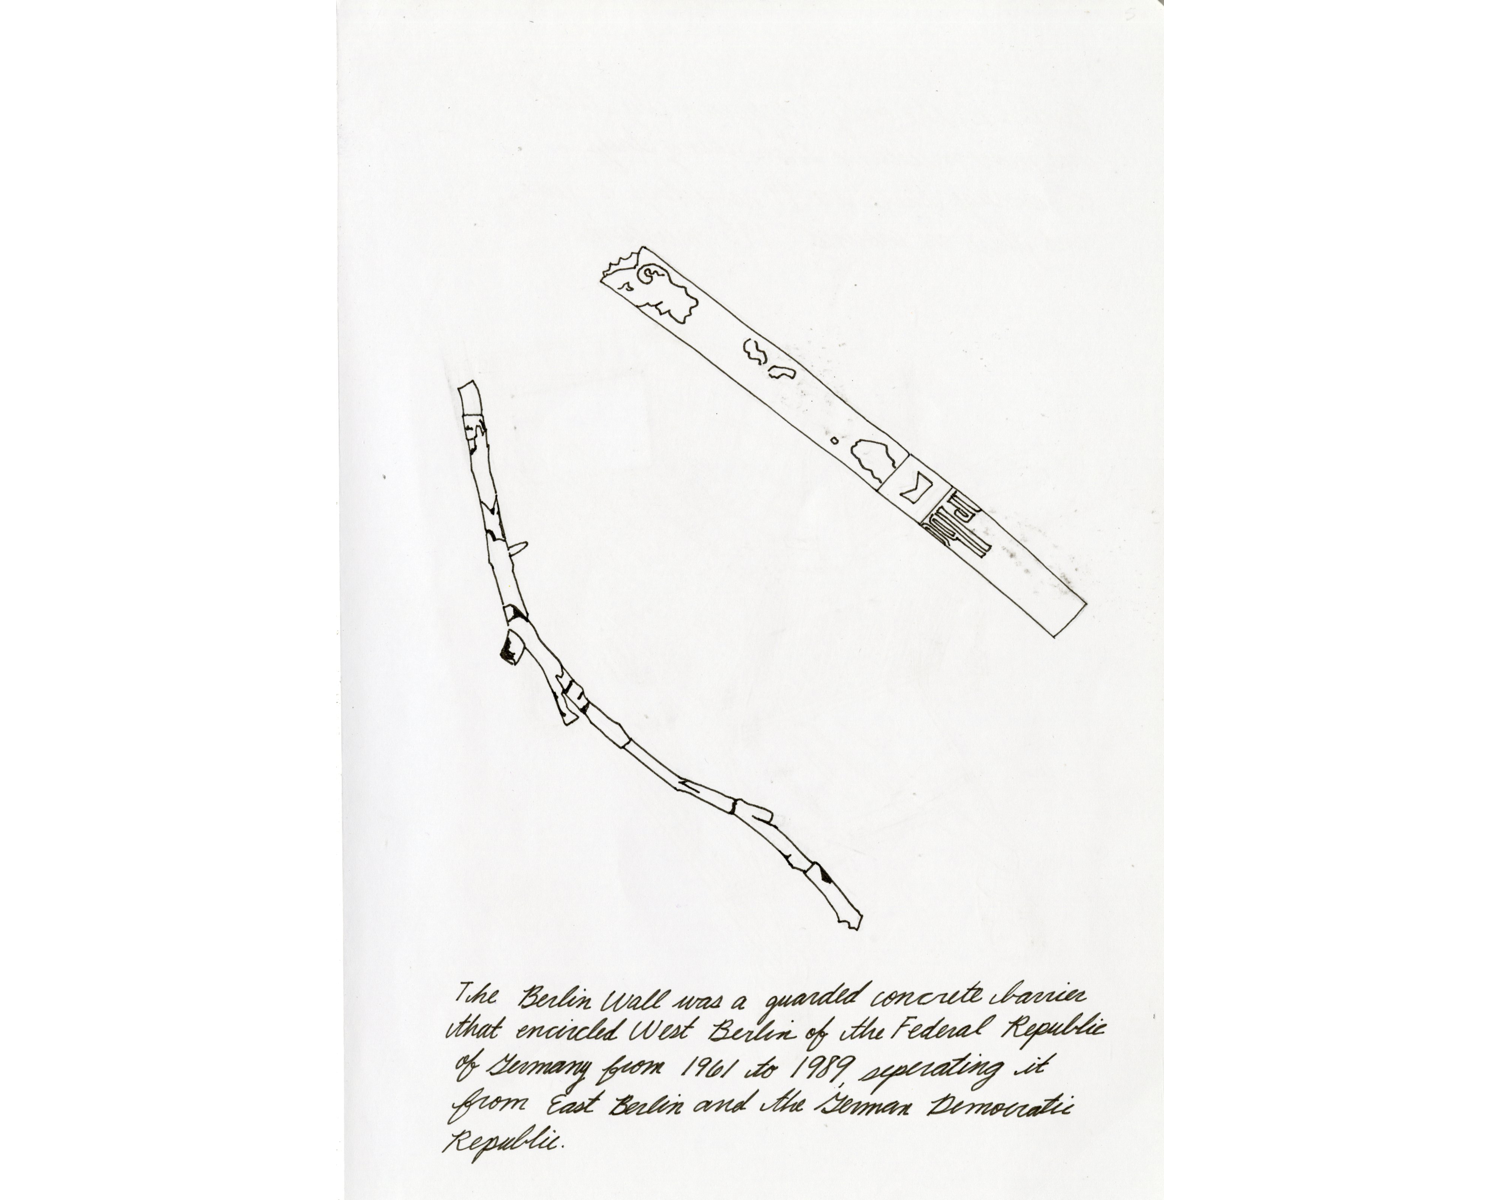 The Berlin Wall was a guarded concrete barrier
that encircled West Berlin of the Federal Republic
of Germany from 1961 to 1989, seperating it
from East Berlin and the German Democratic
Republic.